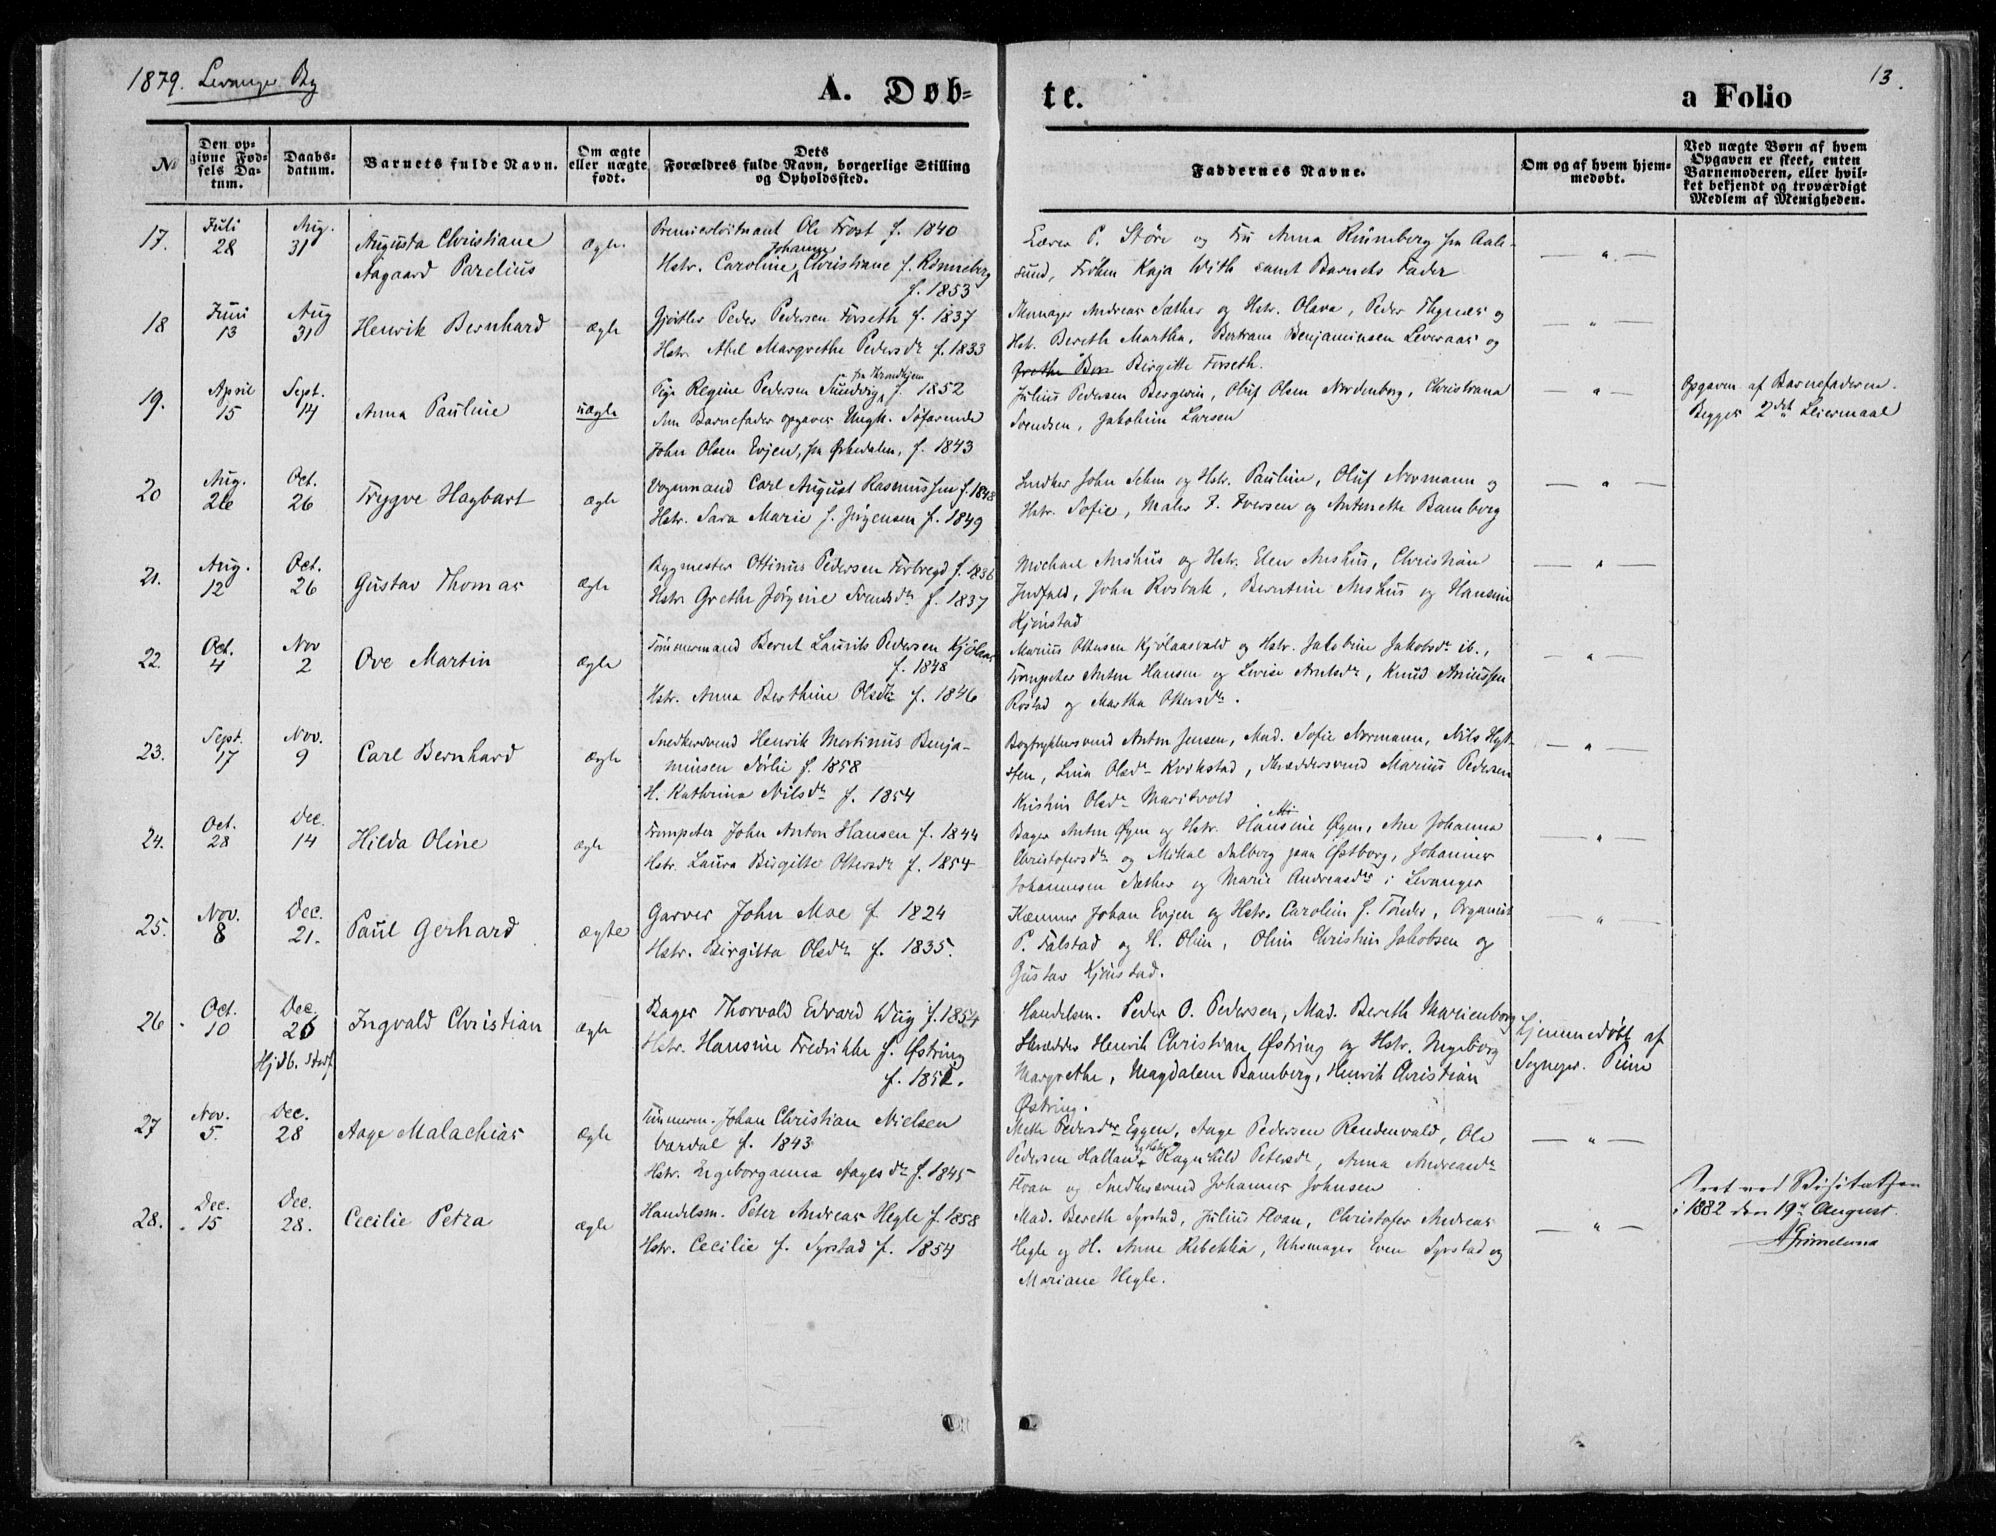 1879. Levanger By
A. Døb-
te.
a Folio
13.
No
Den op-
givne Fød-
sels Da-
tum.
Daabs-
datum.
Barnets fulde Navn.
Om ægte
eller uægte
født.
Dets
Forældres fulde Navn, borgerlige Stilling
og Opholdssted.
Faddernes Navne.
Om og af hvem hjem-
medøbt.
Ved uægte Børn af hvem
Opgaven er skeet, enten
Barnemoderen, eller hvil-
ket bekjendt og troværdigt
Medlem af Menigheden.
17. Juli 28 Aug. 31 Augusta Christiane
Aagaard Parelius
ægte.
Premierløitnant Ole Frost f. 1840
Johanne
Hstr. Caroline Christiane f. Rønneberg
f. 1853
Lærer P. Støre og Fru Anna Rønneberg fra Aale-
sund, Frøken Kaja With samt Barnets Fader
— " —
18 Juni 13 Aug 31 Henrik Bernhard
ægte
Gjørtler Peder Pedersen Forseth f. 1837
Hstr. Abel Margrethe Pedersdr f. 1833
Andreas Sæther og Hstr. Olava, Peder Thynæs og
Hst. Bereth Martha, Bertram Benjaminsen Leveraas og
Grethe Birgitte Forseth.
— " —
19. April 15 Sept. 14 Anna Pauline
uægte
fra Trondhjem
Pige Regine Pedersen Sundvig, f. 1852
Som Barnefader opgaves Ungk. Søfarende
John Olsen Evjen, fra Ørkedalen, f. 1843
Julius Pedersen Berg, Oluf Olsen Nordenborg, Christiana
Svendsen, Jakobine Larsen
— " —
Opgaven af Barnefaderen.
Begges 2det Leiermaal
20 Aug. 26 Oct. 26 Trygve Hagbart
ægte
Vognmand Carl August Rasmussen f. 1848
Hstr. Sara Marie f. Jørgensen f. 1849
Snedker John Selm og Hstr. Pauline, Oluf Normann og
Hstr. Sofie, Maler F. Iversen og Antonette Bamberg
— " —
21. Aug. 12 Oct. 26 Gustav Thomas
ægte
Bygmester Ottinus Pedersen Forbregd f. 1836
Hstr Grethe Jørgine Svendsdr f. 1837
Michael Aushus og Hstr. Elen Aushus, Christian
Indfald, John Rosbak, Berntine Aushus og Hansine
Kjønstad
"
22. Oct. 4 Nov 2 Ove Martin
ægte
Tømmermand Bernt Laurits Pedersen Kjølaas
f. 1848
Hstr. Anna Berthine Olsdr f. 1846
Marius Ottesen Kjølaasvald og Hstr. Jakobine Jakobsdr ib.,
Trompeter Anton Hansen og Lovise Arntsdr, Knud Amundsen
Røstad og Martha Ottersdr.
— " —
23. Sept. 17 Nov. 9 Carl Bernhard
ægte
Snedkersvend Henrik Martinus Benja-
minsen Sørlie f. 1858
H. Kathrina Nilsdr f. 1854
Bogtrykkersvend Anton Jensen, Mad. Sofie Normann, Nils Hyt-
sten, Lina Olsdr Kvikstad, Skræddersvend Marius Pedersen
Kristin Olsdr Maritvold
— " —
24. Oct. 28 Dec. 14 Hilda Oline
ægte
Trompeter John Anton Hansen f. 1844
Hstr. Laura Birgitte Ottersdr f. 1854
Bager Anton Øyen og Hstr. Hansine Øyen, Ane Johanna
Christofersdr og Mikal Salberg paa Østborg, Johannes
Johannesen Sæther og Marie Andreasdr i Levanger
— " —
25. Nov. 8 Dec. 21. Paul Gerhard
ægte
Garver John Moe f. 1824
Hstr. Birgitta Olsdr f. 1835.
Kæmner Johan Evjen og Hstr. Caroline f. Tønder, Organist
P. Falstad og H. Oline, Oline Christine Jakobsen og
Gustav Kjønstad.
— " —
26. Oct. 10 Dec. 26 Ingvald Christian
Hjdb. stadf.
ægte
Bager Thorvald Edvard Wiig f. 1854
Hstr. Hansine Fredrikke f. Østring
f. 1852.
Handelsm. Peder O. Pedersen, Mad. Bereth Marienborg
Skrædder Henrik Christian Østring og Hstr. Ingeborg
Margrethe, Magdalene Bamberg, Henrik Christian
Østring.
Hjemmedøbt af
Sognepr. Piene
27 Nov. 5. Dec. 28 Aage Malachias
ægte
Tømmerm. Johan Christian Nielsen
Vordal f. 1843
Hstr. Ingeborganna Aagesdr f. 1845
Mette Pedersdr Eggen, Aage Pedersen Rendenvald, Ole
og Hstr
Pedersen Hallan Ragnhild Petersdr, Anna Andreasdr
Floan og Snedkersvend Johannes Johnsen
— " —
28. Dec. 15 Dec. 28. Cecilie Petra
ægte
Handelsm. Peter Andreas Hegle f. 1858
Hstr. Cecilie f. Syrstad f. 1854
Mad. Bereth Syrstad, Julius Floan, Christofer Andreas
Hegle og H. Anne Rebekka, Uhrmager Even Syrstad og
Mariane Hegle.
— " —
Seet ved Visitatsen
i 1882 den 19de August.
AGrimelund